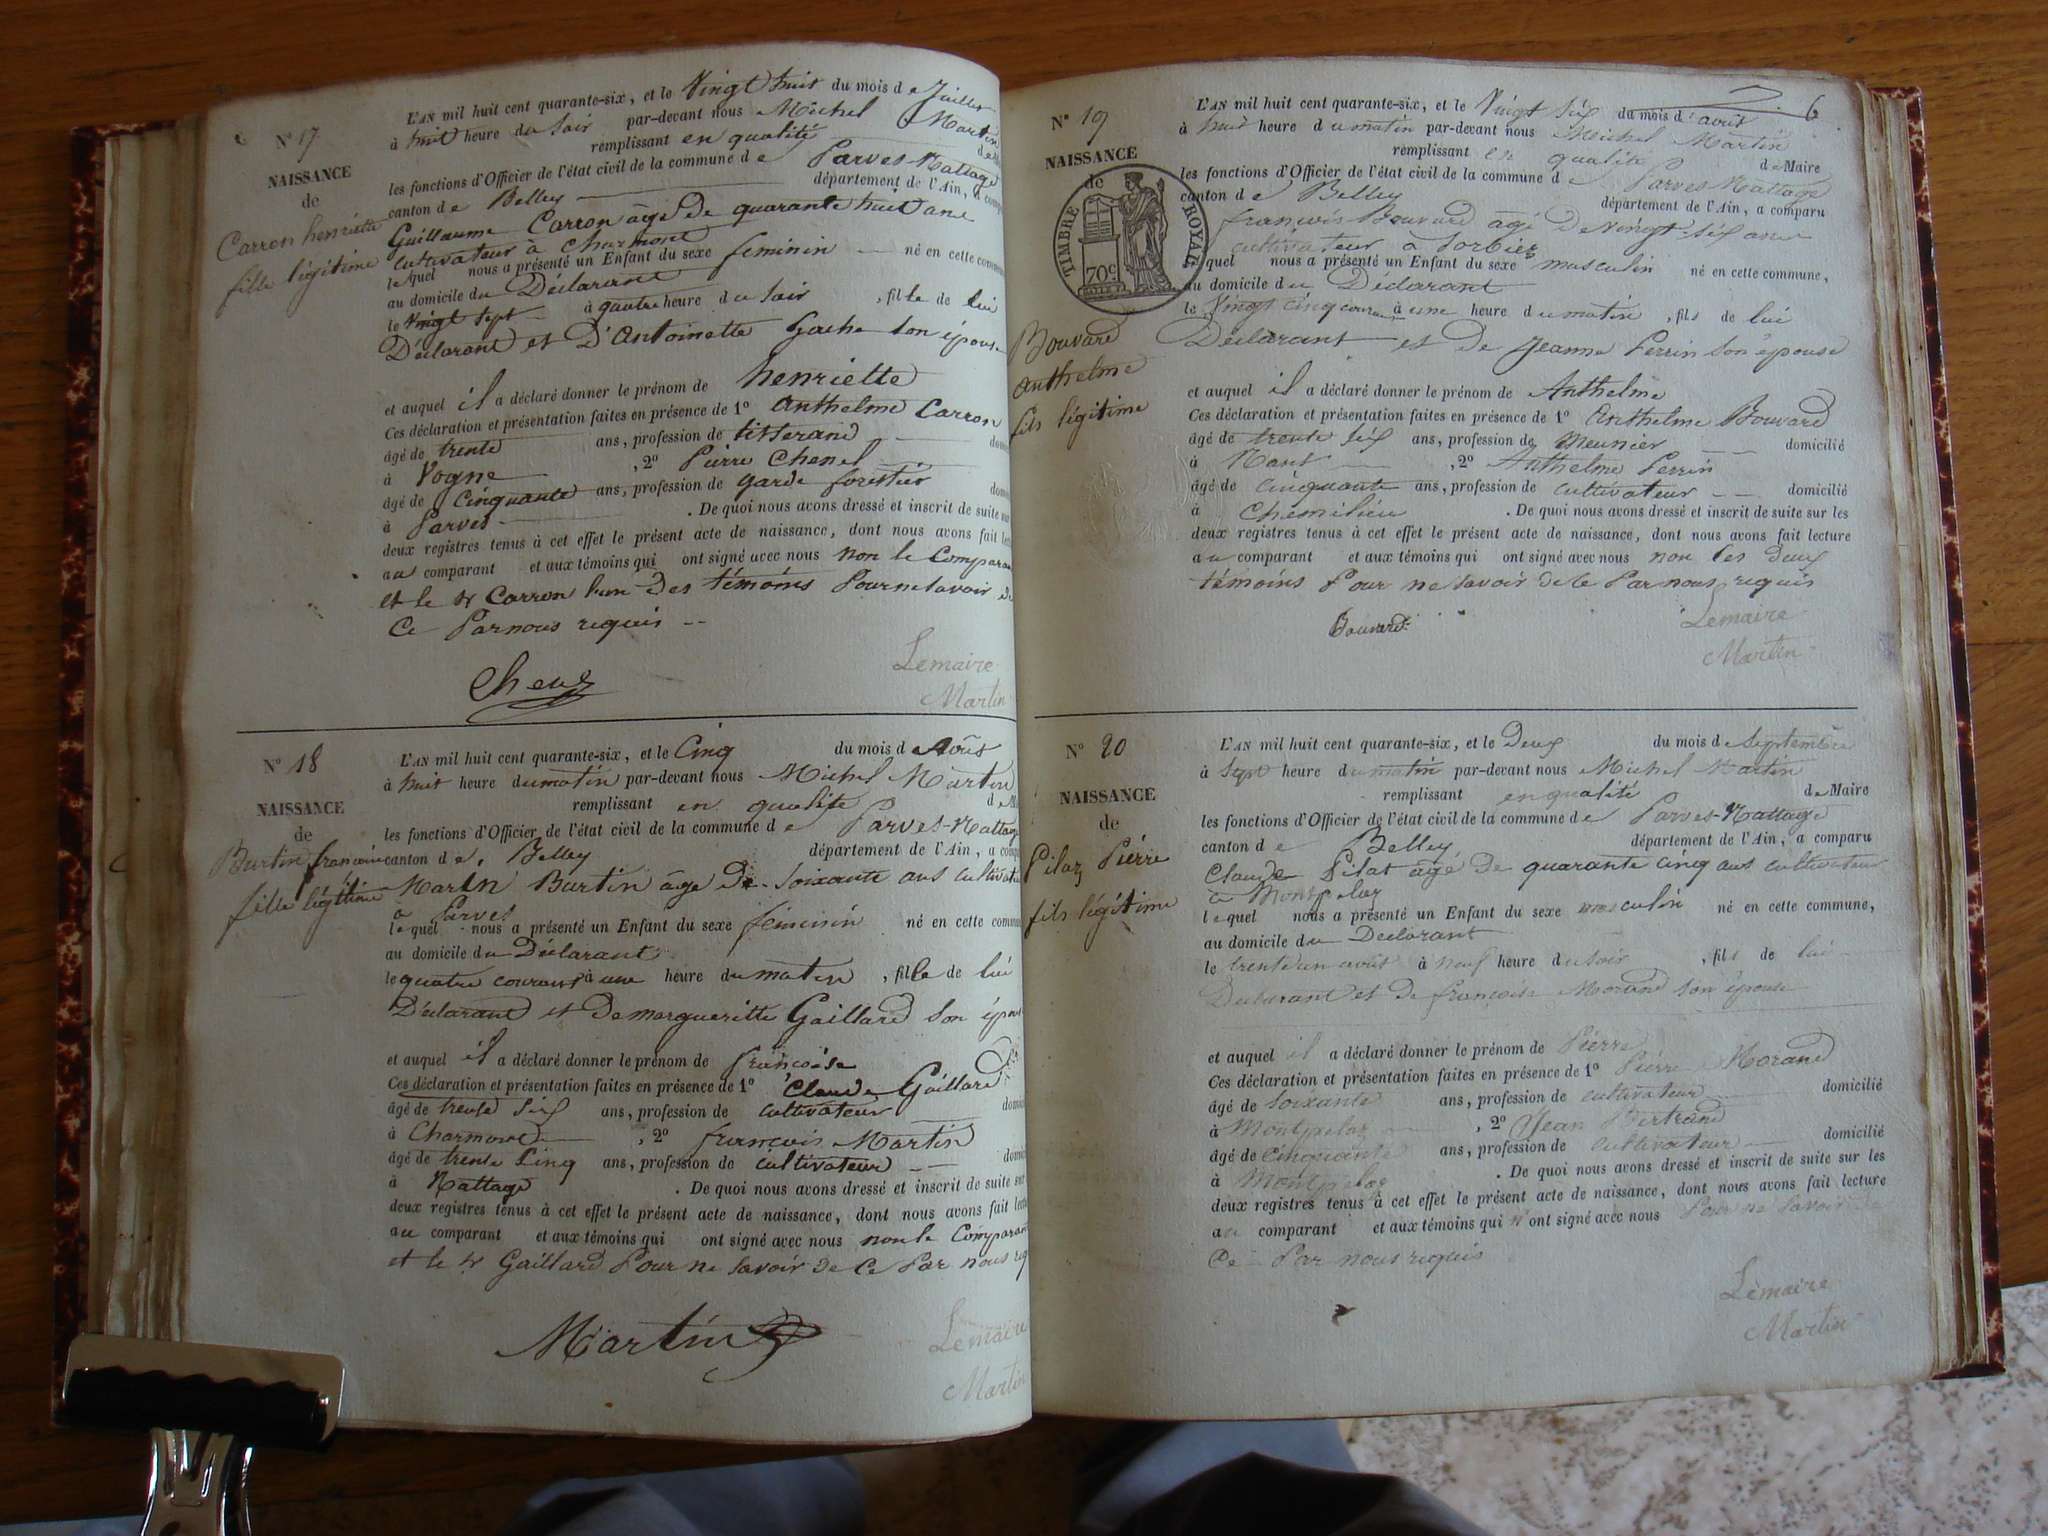 N° 17
NAISSANCE
de
Carron henriette
fille légitime
L'AN mil huit cent quarante-six, et le Vingt huit du mois de Juillet
à huit heure du Soir par-devant nous Michel Martin
remplissant en qualité de
les fonctions d'Officier de l'état civil de la commune de Parves-Nattage
canton de Belley département de l'Ain, a
Guillaume Carron âgé de quarante huit ans
cultivateur à Charmont
lequel nous a présenté un Enfant du sexe feminin né en cette
au domicile du Déclarant
le Vingt Sept à quatre heure du Soir , fille de lui
Déclarant et D'Antoinette Gache son épouse
et auquel il a déclaré donner le prénom de henriette
Ces déclaration et présentation faites en présence de 1° Anthelme Carron
âgé de trente ans, profession de tisserand
à Vogne , 2° Pierre Chenel
âgé de Cinquante ans, profession de garde forestier
à Parves . De quoi nous avons dressé et inscrit de suite sur
deux registres tenus à cet effet le présent acte de naissance, dont nous avons fait
au comparant et aux témoins qui ont signé avec nous non le Comparant
et le Sr Carron l'un des témoins Pour ne savoir de
Ce Par nous requis
Lemaire
Martin
N° 18
NAISSANCE
de
Burtin françoise
fille légitime
L'AN mil huit cent quarante-six, et le Cinq du mois d Août
à huit heure du matin par-devant nous Michel Martin
remplissant en qualité
les fonctions d'Officier de l'état civil de la commune de Parves-Nattage
canton de Belley département de l'Ain, a
Martin Burtin âgé de Soixante ans Cultivateur
à Parves
lequel nous a présenté un Enfant du sexe féminin né en cette
au domicile du Déclarant
le quatre courant à une heure du matin , fille de lui
Déclarant et de margueritte Gaillard son épouse
et auquel il a déclaré donner le prénom de françoise
Ces déclaration et présentation faites en présence de 1° Claude Gaillard
âgé de trente Six ans, profession de cultivateur
à Charmont , 2° françois Martin
âgé de trente Cinq ans, profession de cultivateur
à Nattage . De quoi nous avons dressé et inscrit de suite sur
deux registres tenus à cet effet le présent acte de naissance, dont nous avons fait
au comparant et aux témoins qui ont signé avec nous non le Comparant
et le Sr Gaillard Pour ne savoir de Ce Par nous
Martin
Lemaire
Martin
6
N° 19
NAISSANCE
de
TIMBRE ROYAL
70 c.
Bouvard
Anthelme
fils légitime
L'AN mil huit cent quarante-six, et le Vingt Six du mois d'août
à huit heure du matin par-devant nous Michel Martin
remplissant en qualité de Maire
les fonctions d'Officier de l'état civil de la commune de Parves-Nattage
canton de Belley département de l'Ain, a comparu
françois Bouvard âgé de Vingt-Six ans
cultivateur à Sorbier
lequel nous a présenté un Enfant du sexe masculin né en cette commune,
au domicile du Déclarant
le Vingt cinq courant à une heure du matin , fils de lui
Déclarant et de Jeanne Perrin son épouse
et auquel il a déclaré donner le prénom de Anthelme
Ces déclaration et présentation faites en présence de 1° Anthelme Bouvard
âgé de trente Six ans, profession de Meunier domicilié
à Nant , 2° Anthelme Perrin
âgé de cinquante ans, profession de cultivateur domicilié
à Chemilieu . De quoi nous avons dressé et inscrit de suite sur les
deux registres tenus à cet effet le présent acte de naissance, dont nous avons fait lecture
au comparant et aux témoins qui ont signé avec nous non les deux
témoins Pour ne savoir de Ce Par nous requis
Bouvard
Lemaire
Martin
N° 20
NAISSANCE
de
Pilaz Pierre
fils légitime
L'AN mil huit cent quarante-six, et le Deux du mois de Septembre
à Sept heure du matin par-devant nous Michel Martin
remplissant en qualité de Maire
les fonctions d'Officier de l'état civil de la commune de Parves-Nattage
canton de Belley département de l'Ain, a comparu
Claude Pilat âgé de quarante cinq ans cultivateur
à Montpelaz
lequel nous a présenté un Enfant du sexe masculin né en cette commune,
au domicile du Déclarant
le trente un août à neuf heure du soir , fils de lui
Déclarant et de françoise Morand son épouse
et auquel il a déclaré donner le prénom de Pierre
Ces déclaration et présentation faites en présence de 1° Pierre Morand
âgé de Soixante ans, profession de cultivateur domicilié
à Montpelaz , 2° Jean Bertrand
âgé de cinquante ans, profession de cultivateur domicilié
à Montpelaz . De quoi nous avons dressé et inscrit de suite sur les
deux registres tenus à cet effet le présent acte de naissance, dont nous avons fait lecture
au comparant et aux témoins qui n'ont signé avec nous Pour ne savoir de
Ce Par nous requis
Lemaire
Martin